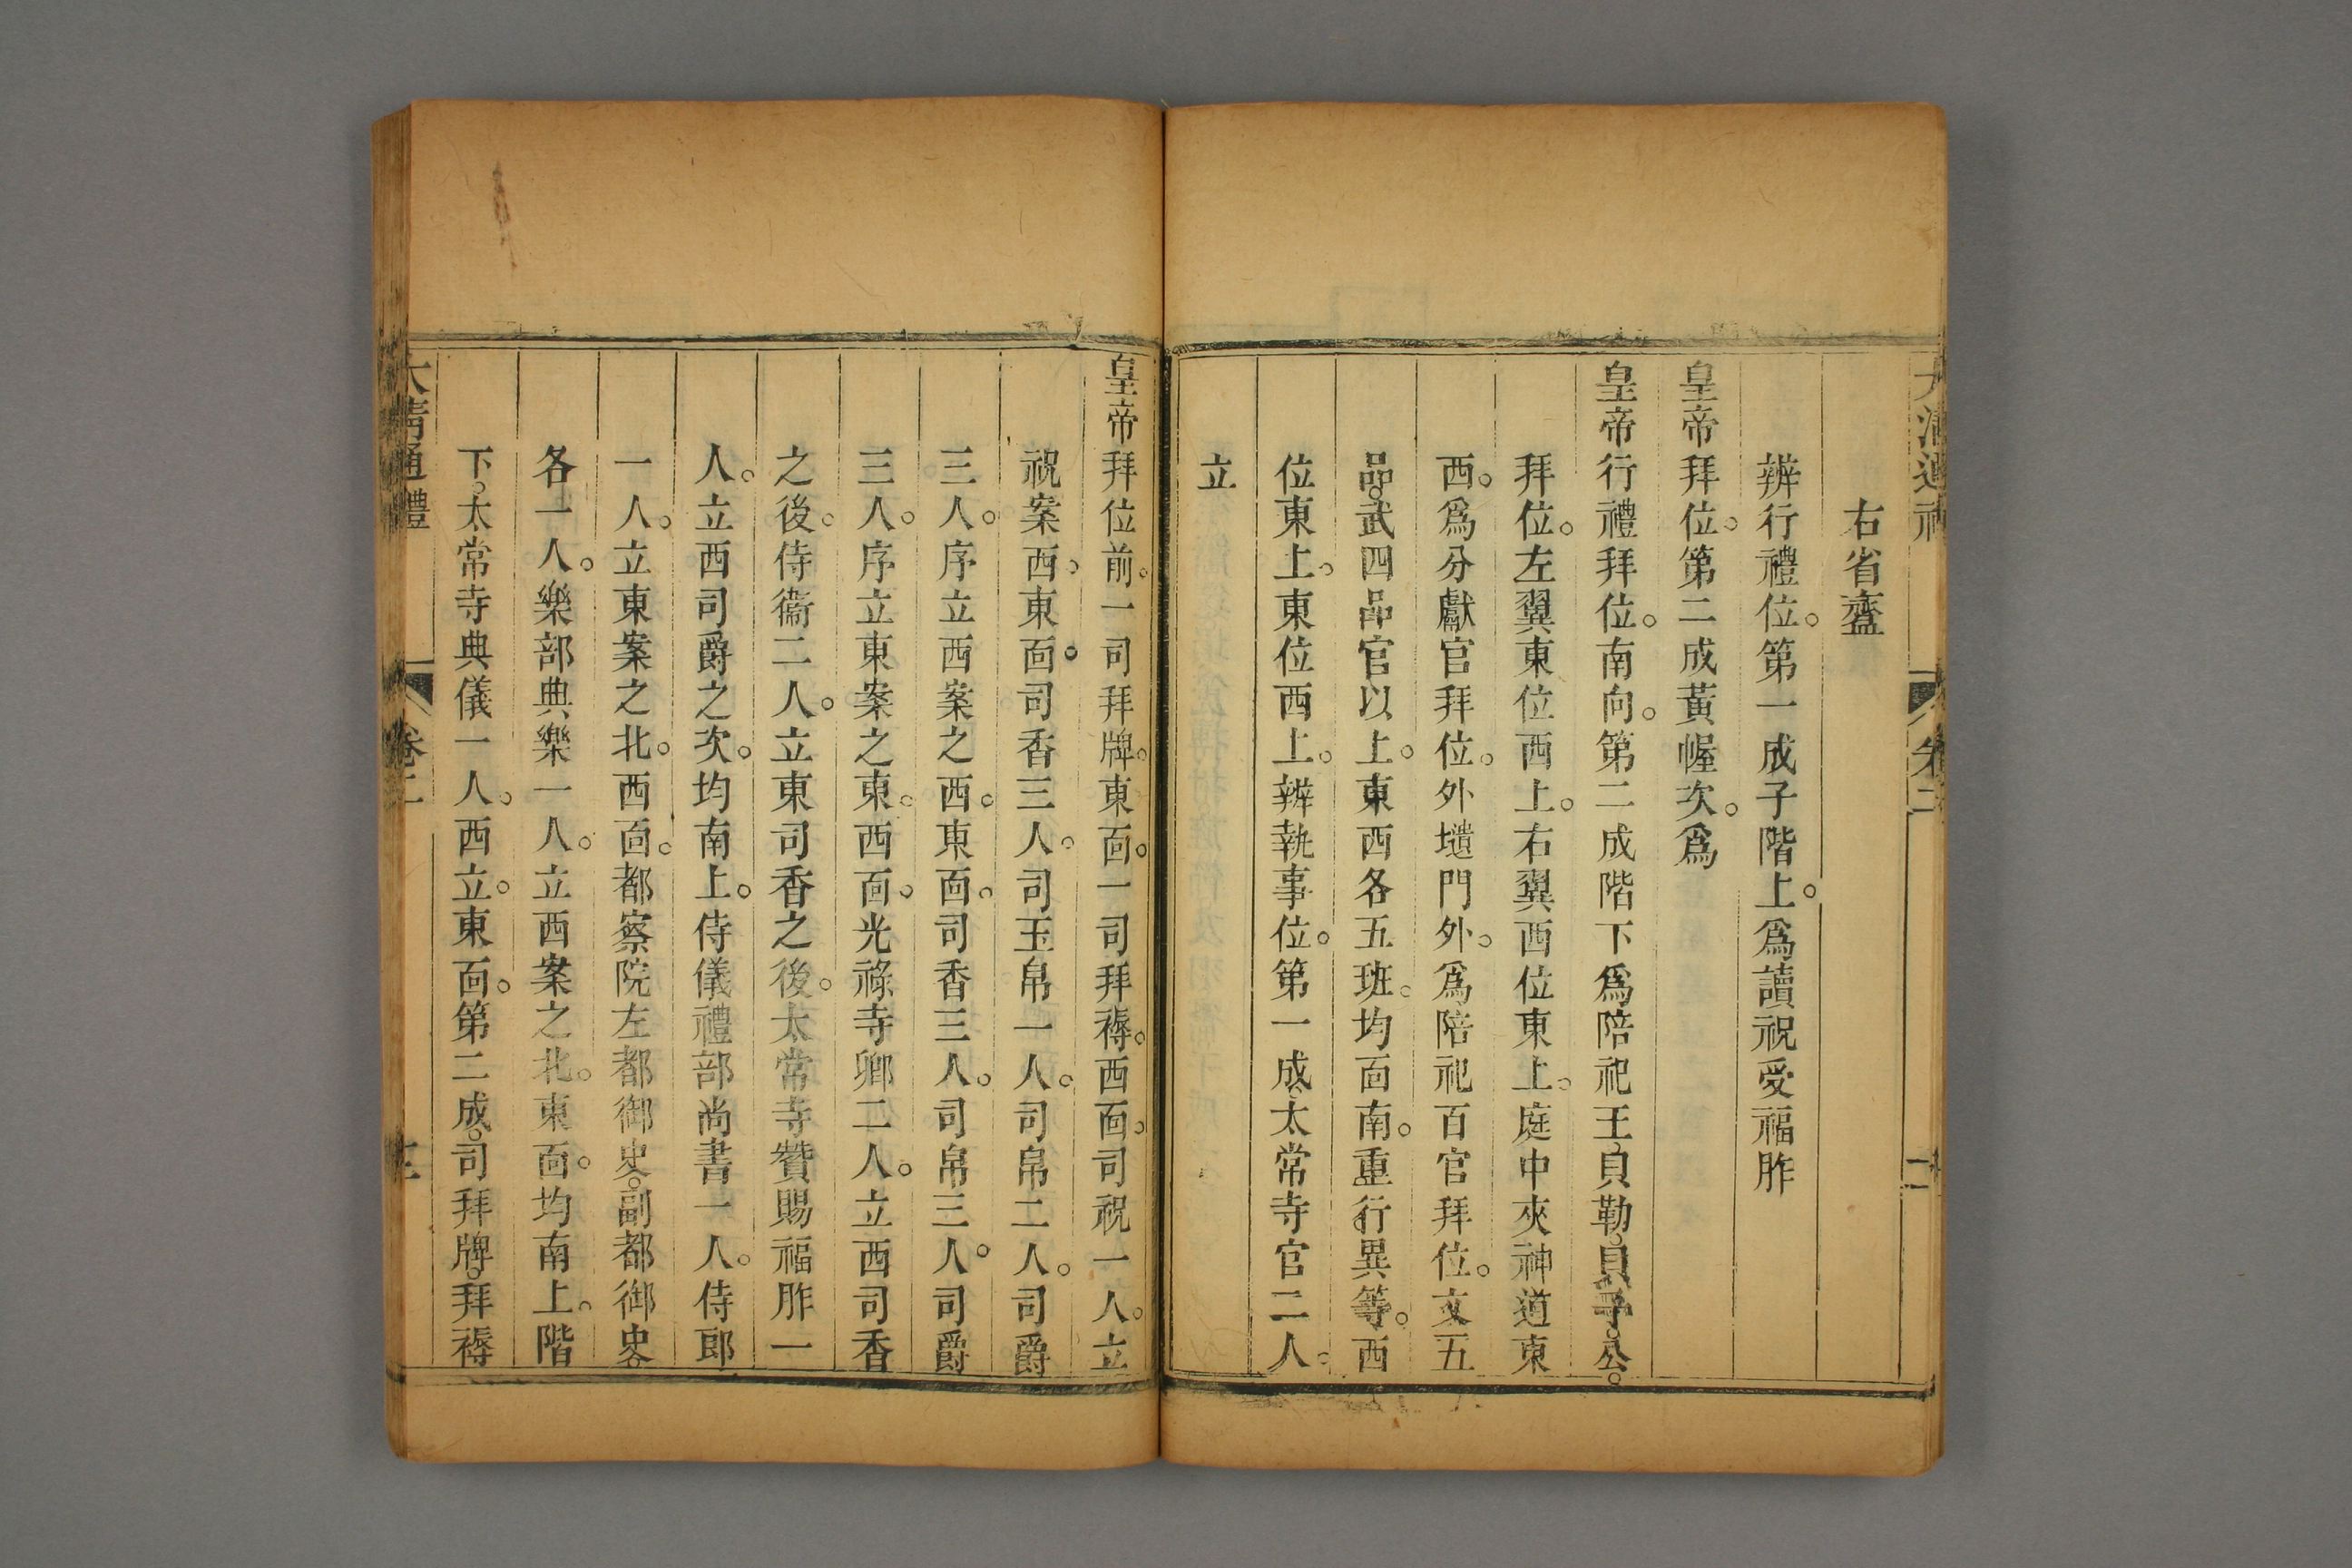 右省齍
辨行禮位。第一成子階上。爲讀祝受福胙
皇帝拜位。第二成黃幄次。爲
皇帝行禮拜位。南向。第二成階下爲陪祀王、貝勒。貝子。公。
拜位。左翼東位西上。右翼西位東上。庭中夾神道東
西。爲分獻官拜位。外壝門外。爲陪祀百官拜位。文五
品。武四品官以上。東西各五班。均面南。重行異等。西
位東上。東位西上。辨執事位。第一成、太常寺官二人。
立
皇帝拜位前。一司拜牌。東面。一司拜褥。西面。司祝一人。立
祝案西。東面。司香三人。司玉帛一人。司帛二人。司爵
三人。序立西案之西。東面。司香三人。司帛三人。司爵
三人。序立東案之東。西面。光祿寺卿二人。立西司香
之後。侍衞二人。立東司香之後。太常寺贊賜福胙一
人。立西司爵之次。均南上。侍儀禮部尚書一人。侍郎
一人。立東案之北。西面。都察院左都御史。副都御史。
各一人。樂部典樂一人。立西案之北。東面。均南上。階
下。太常寺典儀一人。西立。東面。第二成。司拜牌。拜褥
大清通禮 卷二